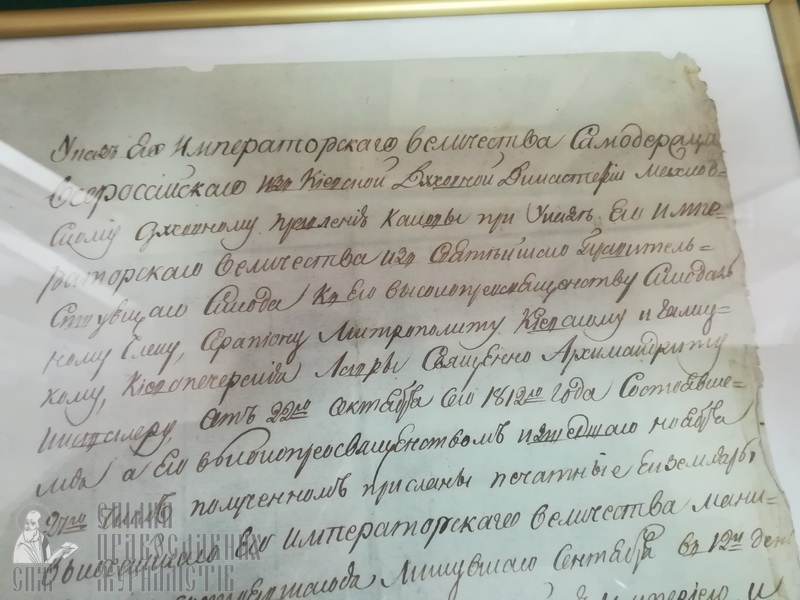 Указъ Его Императорскаго Величества Самодержца
Всероссійскаго изъ Кіевской Духовной Дикастеріи
Духовному Правленію при Указѣ Его Импе-
раторскаго Величества изъ Святѣйшаго Правитель-
ствующаго Синода къ Его высокопреосвященству Синодаль-
ному Члену, Серапіону Митрополиту Кіевскому и Галиц-
кому, Кіевопечерскія Лавры Священно Архимандриту
атъ 22го октября сего 1812го года Состоявше-
мся а Его высокопреосвященствомъ ноября
27го полученномъ присланы печатные екземпляры
Его императорскаго величества мани-
Сентября въ 12й день
СПІЛКА
ПРАВОСЛАВНИХ
ЖУРНАЛІСТІВ
СПЖ